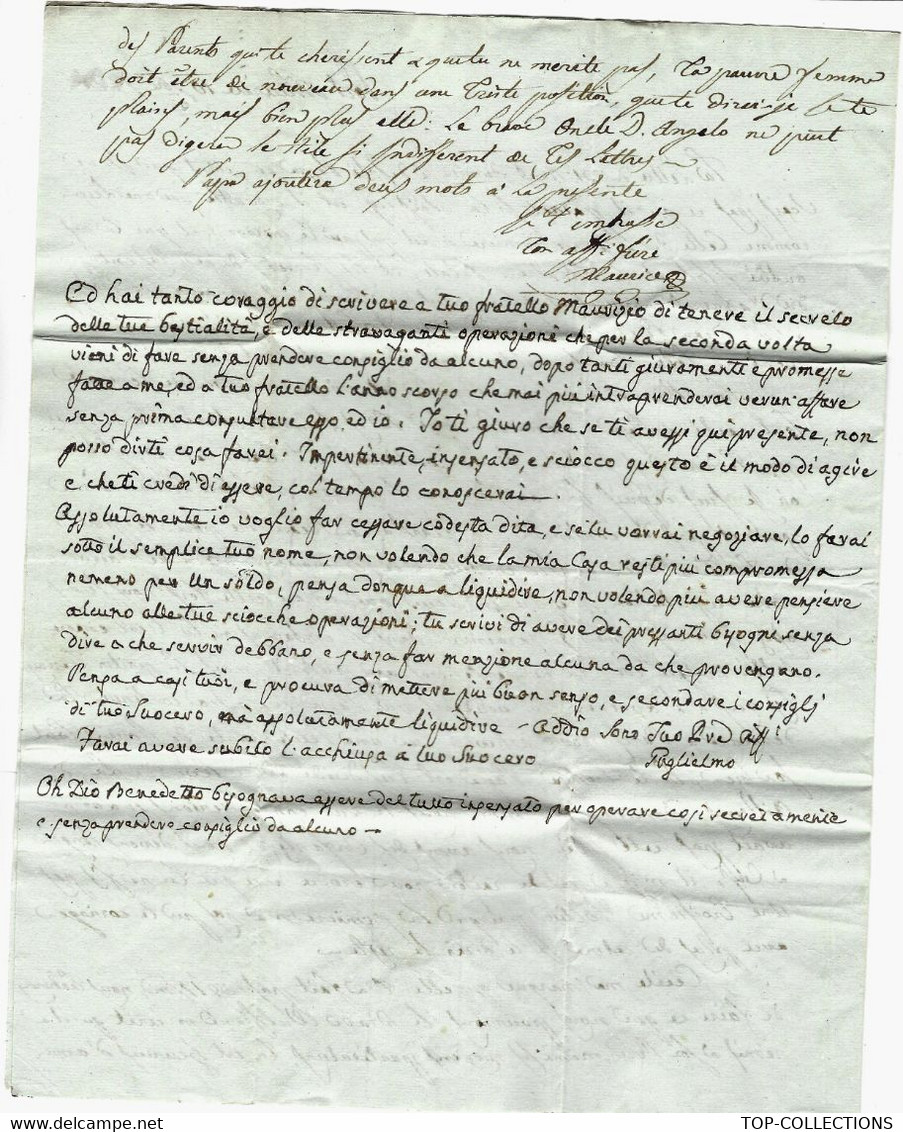 des Parents qui te cherissent & que tu ne merite pas, Ta pauvre femme
doit être de nouveau dans une triste position, que te dirai-je Je te
plains, mais bien plus elle: Le brave Oncle D. Angelo ne peut
pas digerer le stile si Indifferent de Tes Lettres —
Papa ajoutera deux mots à La presente
Je t'embrasse
Ton aff. frère
Maurice
Ed hai tanto coraggio di scrivere a tuo fratello Maurizio di tenere il secreto
delle tue bestialità, e delle stravaganti operazioni che per la seconda volta
vieni di fare senza prendere consiglio da alcuno, dopo tanti giuramenti e promesse
fatte a me, ed a tuo fratello l'anno scorso che mai più intraprenderai verun affare
senza prima consultare esso, ed io. Io ti giuro che se ti avessi qui presente, non
posso dirti cosa farei. Impertinente, insensato, e sciocco questo è il modo di agire
e che ti credi di essere, col tempo lo conoscerai.
Assolutamente io voglio far cessare codesta dita, e se tu vorrai negoziare, lo farai
sotto il semplice tuo nome, non volendo che la mia Casa resti più compromessa
nemeno per un soldo, pensa donque a liquidire, non volendo più avere pensiere
alcuno alle tue sciocche operazioni; tu scrivi di avere dei pressanti bisogni senza
dire a che servir debbano, e senza far menzione alcuna da che provengano.
Pensa a casi tuoi, e procura di mettere più buon senso, e secondare i consiglj
di tuo Suocero, mà assolutamente liquidire - Addio Sono Tuo Pre Aff
Farai avere subito l'acchiusa a tuo Suocero Guglielmo
Oh Dio Benedetto bisognava essere del tutto insensato per operare così secretamente
e senza prendere consiglio da alcuno —
TOP-COLLECTIONS